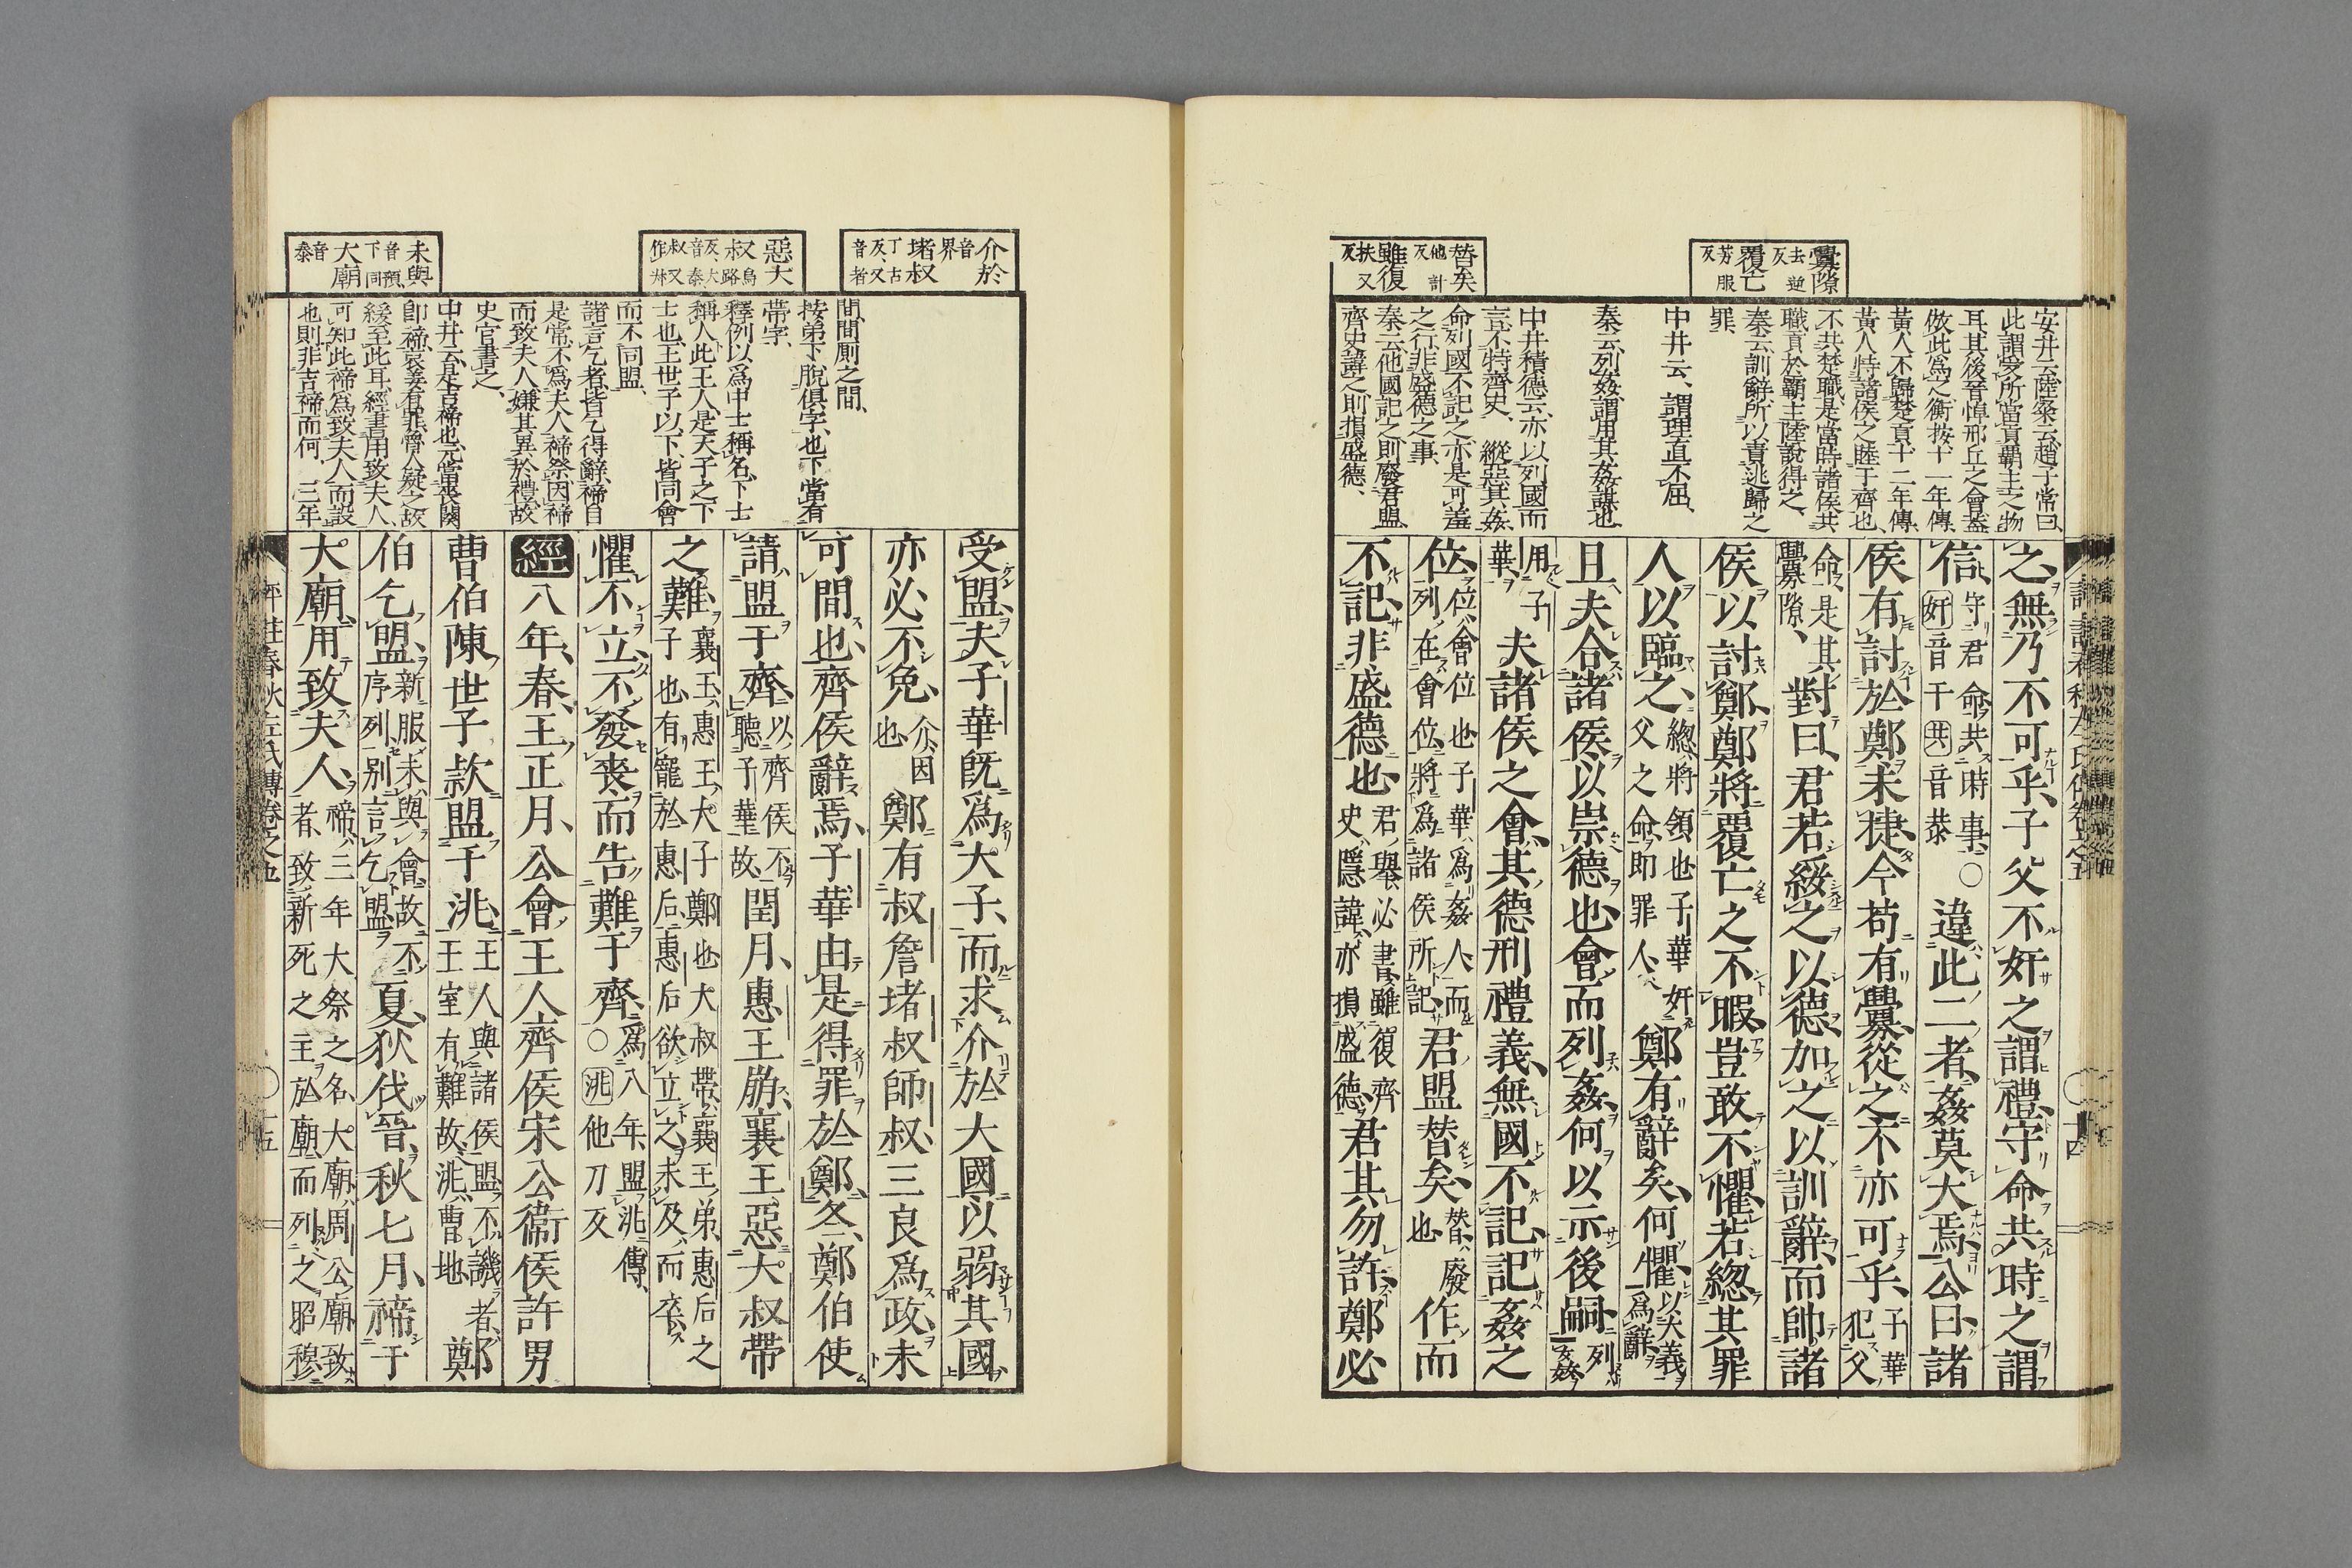 釁隙去逆反覆亡芳服反
替矣他計反雖復扶又反
安井云、陸粲云、趙子常曰、
此謂受所當貢霸主之物
耳、其後晉悼邢丘之會蓋
倣此爲之、衡按、十一年傳、
黃人不歸楚貢、十二年傳、
黃人恃諸侯之睦于齊也、
不共楚職、是當時諸侯共
職貢於霸主、陸說得之、
秦云、訓辭、所以責逃歸之
罪、
中井云、謂理直不屈、
秦云、列姦、謂用其姦謀也、
中井積德云、亦以列國而
言、不特齊史、縱惡其姦
命、列國不記之、亦是可羞
之行、非盛德之事、
秦云、他國記之、則廢君盟、
齊史諱之、則損盛德、
之、無乃不可乎、子父不奸之謂禮、守命共時之謂
信、守君命共時事、○奸音干共音恭違此二者、姦莫大焉、公曰、諸
侯有討於鄭、未捷、今苟有釁、從之、不亦可乎、子華犯父
命、是其釁隙、對曰、君若綏之以德、加之以訓辭、而帥諸
侯以討鄭、鄭將覆亡之不暇、豈敢不懼、若緫其罪
人以臨之、緫、將領也、子華奸父之命、即罪人、鄭有辭矣、何懼、以大義爲辭、
且夫合諸侯、以崇德也、會而列姦、何以示後嗣、列姦、
用子華、夫諸侯之會、其德刑禮義、無國不記、記姦之
位、位、會位也、子華爲姦人、而列在會位、將爲諸侯所記、君盟替矣、替、廢也、作而
不記、非盛德也、君舉必書、雖復齊史隱諱、亦損盛德、君其勿許、鄭必
介於音界堵叔丁古反、又音者
惡大叔烏路反、大音泰、叔又作淑
未與音預、下同大廟音泰
間、間厠之間、
按、弟下脫俱字也、下當有
帶字、
釋例以爲中士稱名、下士
稱人、此王人、是天子之下
士也、王世子以下、皆同會
而不同盟、
諸言乞者、皆乞得辭、禘自
是常、不爲夫人禘祭、因禘
而致夫人、嫌其異於禮、故
史官書之、
中井云、直是吉禘也、元當喪闋
卽禘、哀姜有罪、魯人疑之、故
緩至此耳、經書用致夫人、
可知此禘爲致夫人而設
也、則非吉禘而何、三年
受盟、夫子華旣爲大子、而求介於大國、以弱其國、
亦必不免、介、因也、鄭有叔詹堵叔師叔、三良爲政、未
可間也、齊侯辭焉、子華由是得罪於鄭、冬、鄭伯使
請盟于齊、以齊侯不聽子華故、閏月、惠王崩、襄王惡大叔帶
之難、襄王、惠王大子鄭也、大叔帶、襄王弟、惠后之子也、有寵於惠后、惠后欲立之、未及而卒、
懼不立、不發喪、而告難于齊、爲八年盟洮傳、○洮他刀反
經八年、春、王正月、公會王人齊侯宋公衞侯許男
曹伯陳世子款盟于洮、王人與諸侯盟、不譏者、王室有難故、洮、曹地、鄭
伯乞盟、新服未與會、故不序列、别言乞盟、夏、狄伐晉、秋七月、禘于
大廟、用致夫人、禘、三年大祭之名、大廟、周公廟、致者、致新死之主於廟、而列之昭穆、
評註春秋左氏傳卷之五
十五